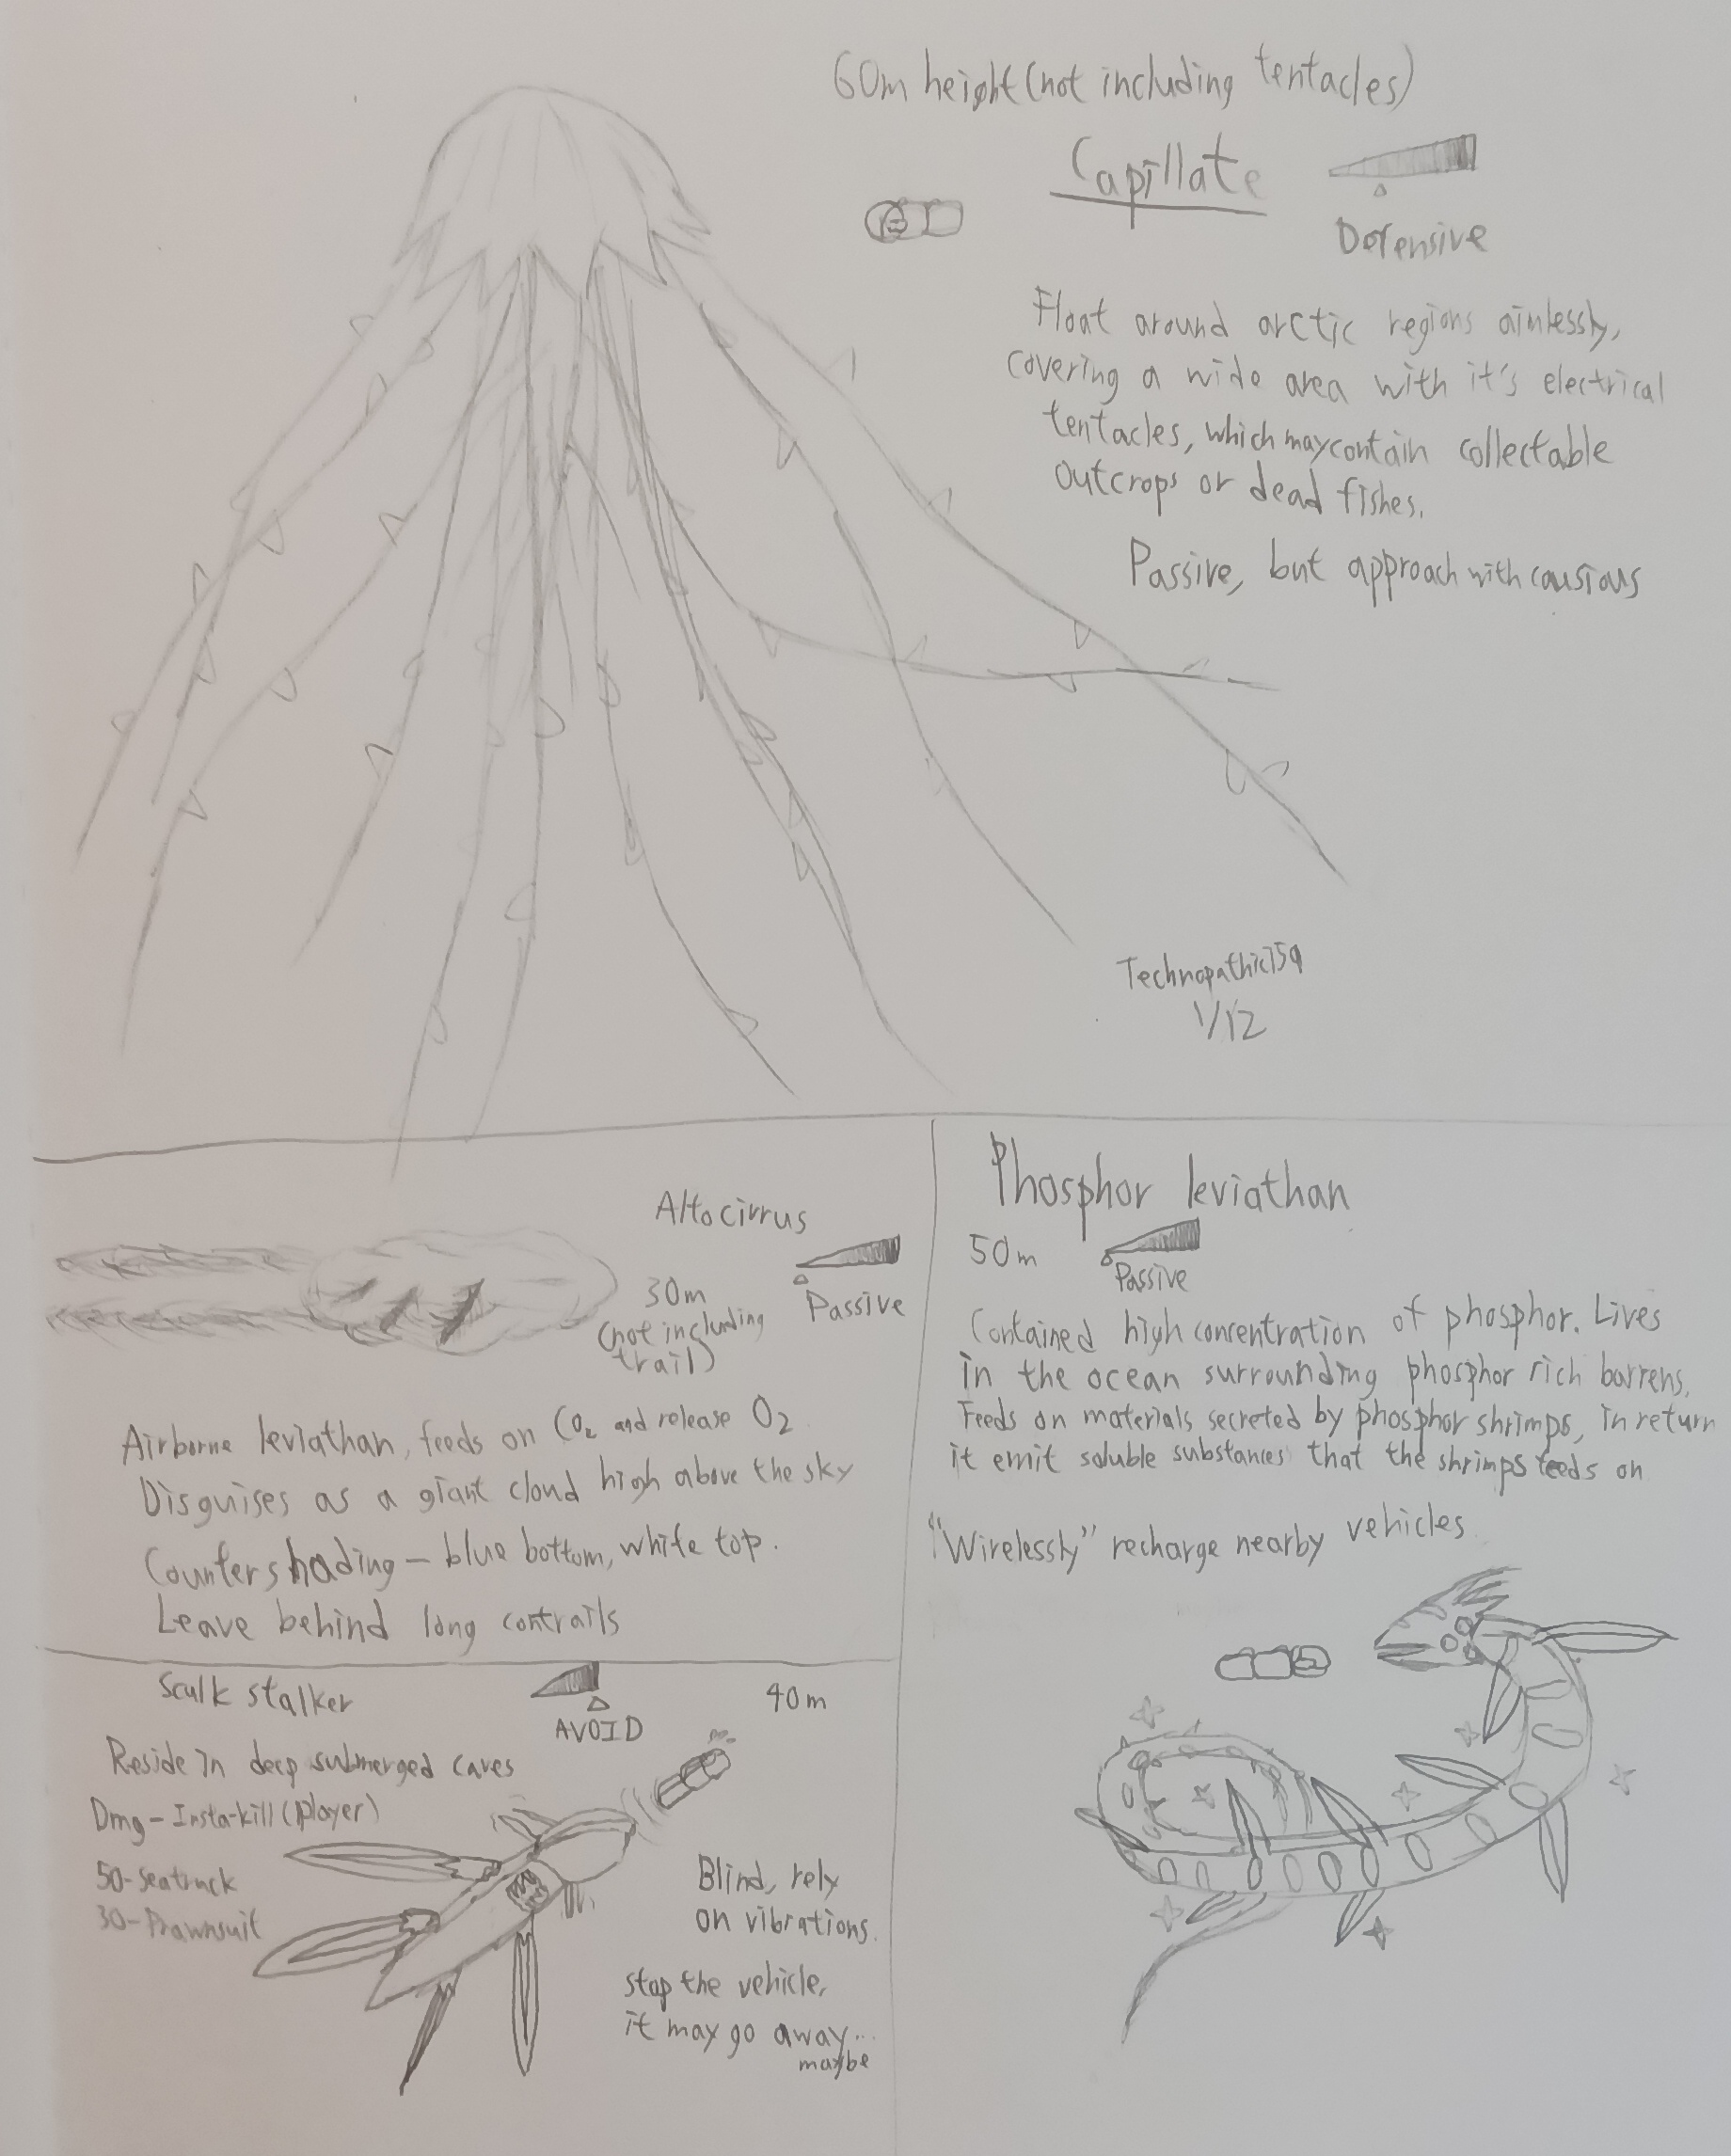 60m height (not including tentacles)
Capillate
Defensive
Float around arctic regions aimlessly,
covering a wide area with it's electrical
tentacles, which may contain collectable
outcrops or dead fishes.
Passive, but approach with causious
Technopathic159
1/12
Altocirrus
30m
(not including
trail)
Passive
Airborne leviathan, feeds on CO₂ and release O₂
Disguises as a giant cloud high above the sky
Countershading – blue bottom, white top.
Leave behind long contrails
Phosphor leviathan
50m
Passive
Contained high concentration of phosphor. Lives
in the ocean surrounding phosphor rich barrens.
Feeds on materials secreted by phosphor shrimps, in return
it emit soluble substances that the shrimps feeds on
"Wirelessly" recharge nearby vehicles.
Sculk stalker
AVOID
40m
Reside in deep submerged caves
Dmg - Insta-kill (player)
50 - Seatruck
30 - Prawnsuit
Blind, rely
on vibrations.
stop the vehicle,
it may go away...
maybe